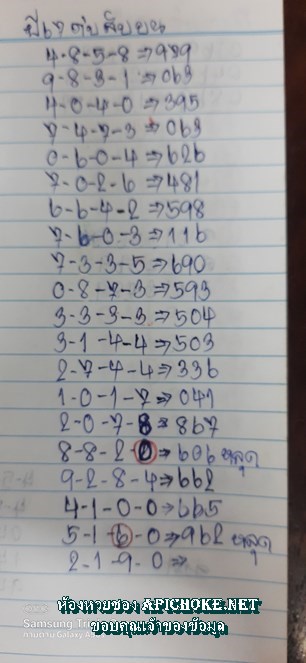 ปี67 ต่อสิบบน
4-8-5-8⇒989
9-8-3-1⇒063
4-0-4-0⇒395
7-4-7-3⇒063
0-6-0-4⇒626
7-0-2-6⇒481
6-6-4-2⇒598
7-6-0-3⇒116
7-3-3-5⇒690
0-8-7-3⇒593
3-3-3-3⇒504
3-1-4-4⇒503
2-7-4-4⇒336
1-0-1-7⇒041
2-0-7-8⇒867
8-8-2-0⇒696 หลุด
9-2-8-4⇒662
4-1-0-0⇒665
5-1-6-0⇒962 หลุด
2-1-9-0⇒
ห้องหวยซอง APICHOKE.NET
Samsung
ถ่ายด้วย Galaxy
ขอบคุณเจ้าของข้อมูล